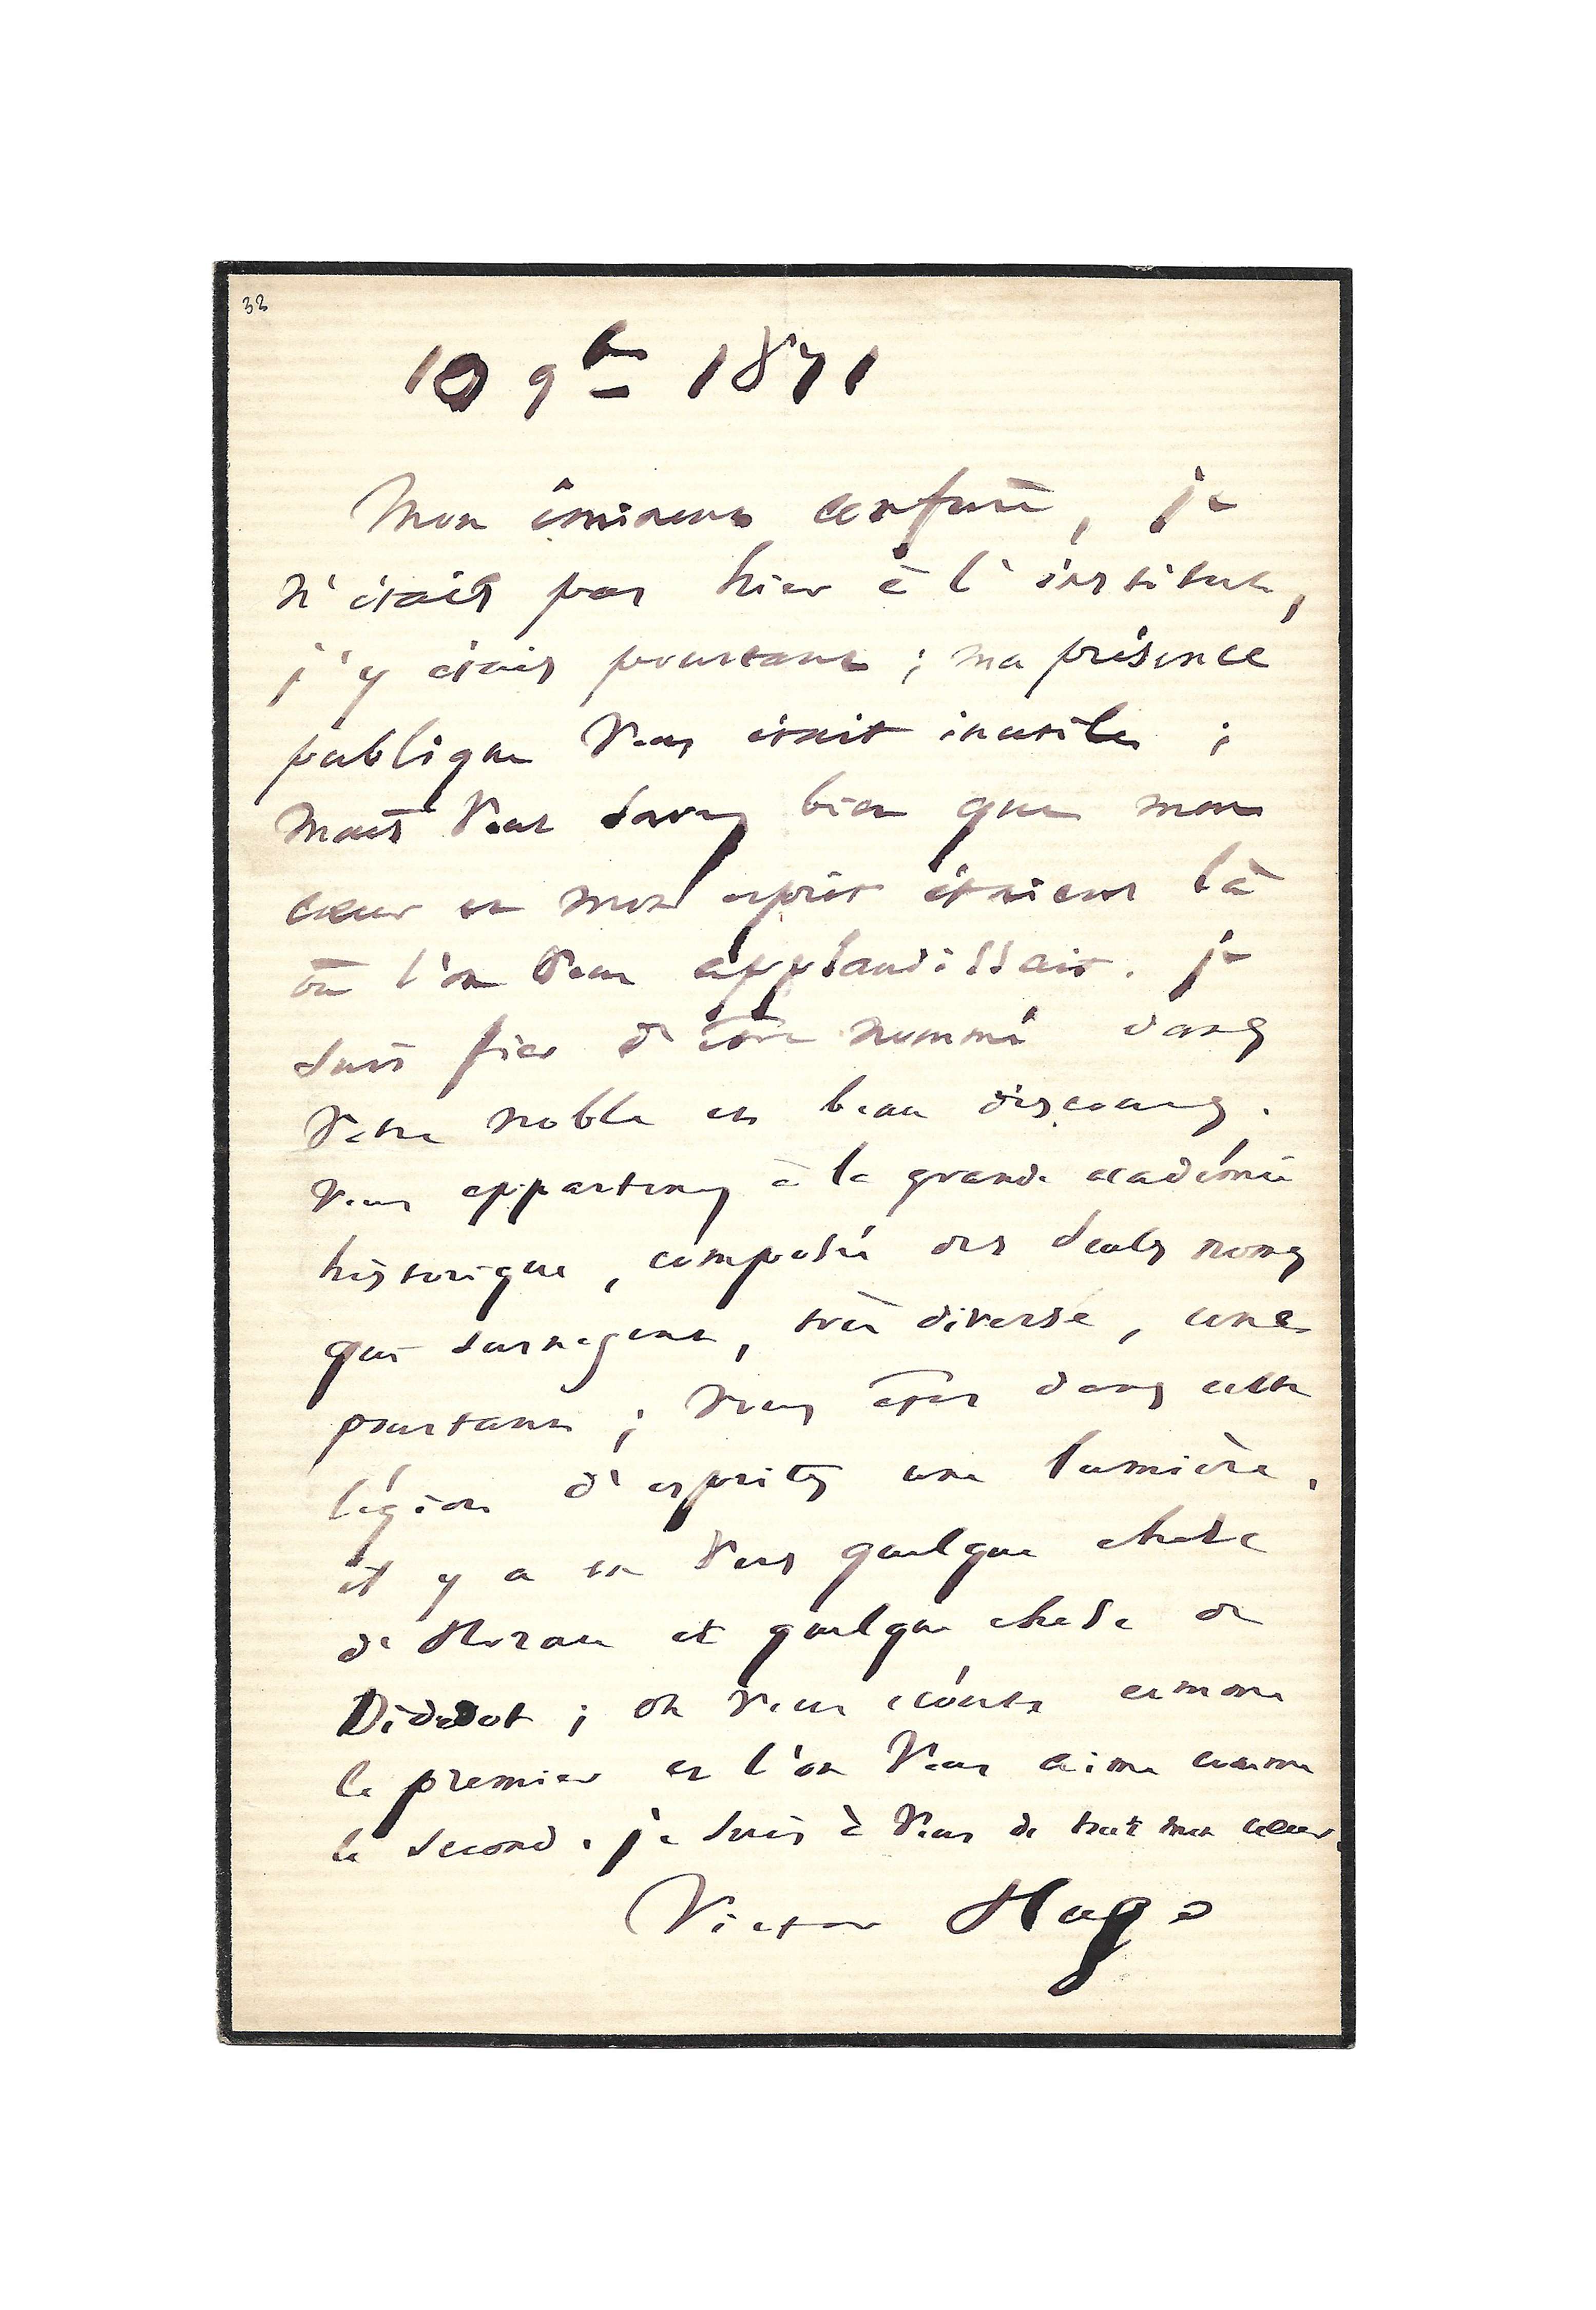 32
10 9bre 1871
Mon éminent confrère, je
n'étais pas hier à l'institut,
j'y étais pourtant ; ma présence
publique vous était inutile ;
mais vous savez bien que mon
cœur et mon esprit étaient là
où l'on vous applaudissait. je
suis fier d'être nommé dans
votre noble et beau discours.
vous appartenez à la grande académie
historique, composée des seuls noms
qui surnagent, très diverse, une
pourtant ; vous êtes dans cette
légion d'esprits une lumière.
il y a en vous quelque chose
d'Horace et quelque chose de
Diderot ; on vous écoute comme
le premier et l'on vous aime comme
le second. je suis à vous de tout mon cœur.
Victor Hugo